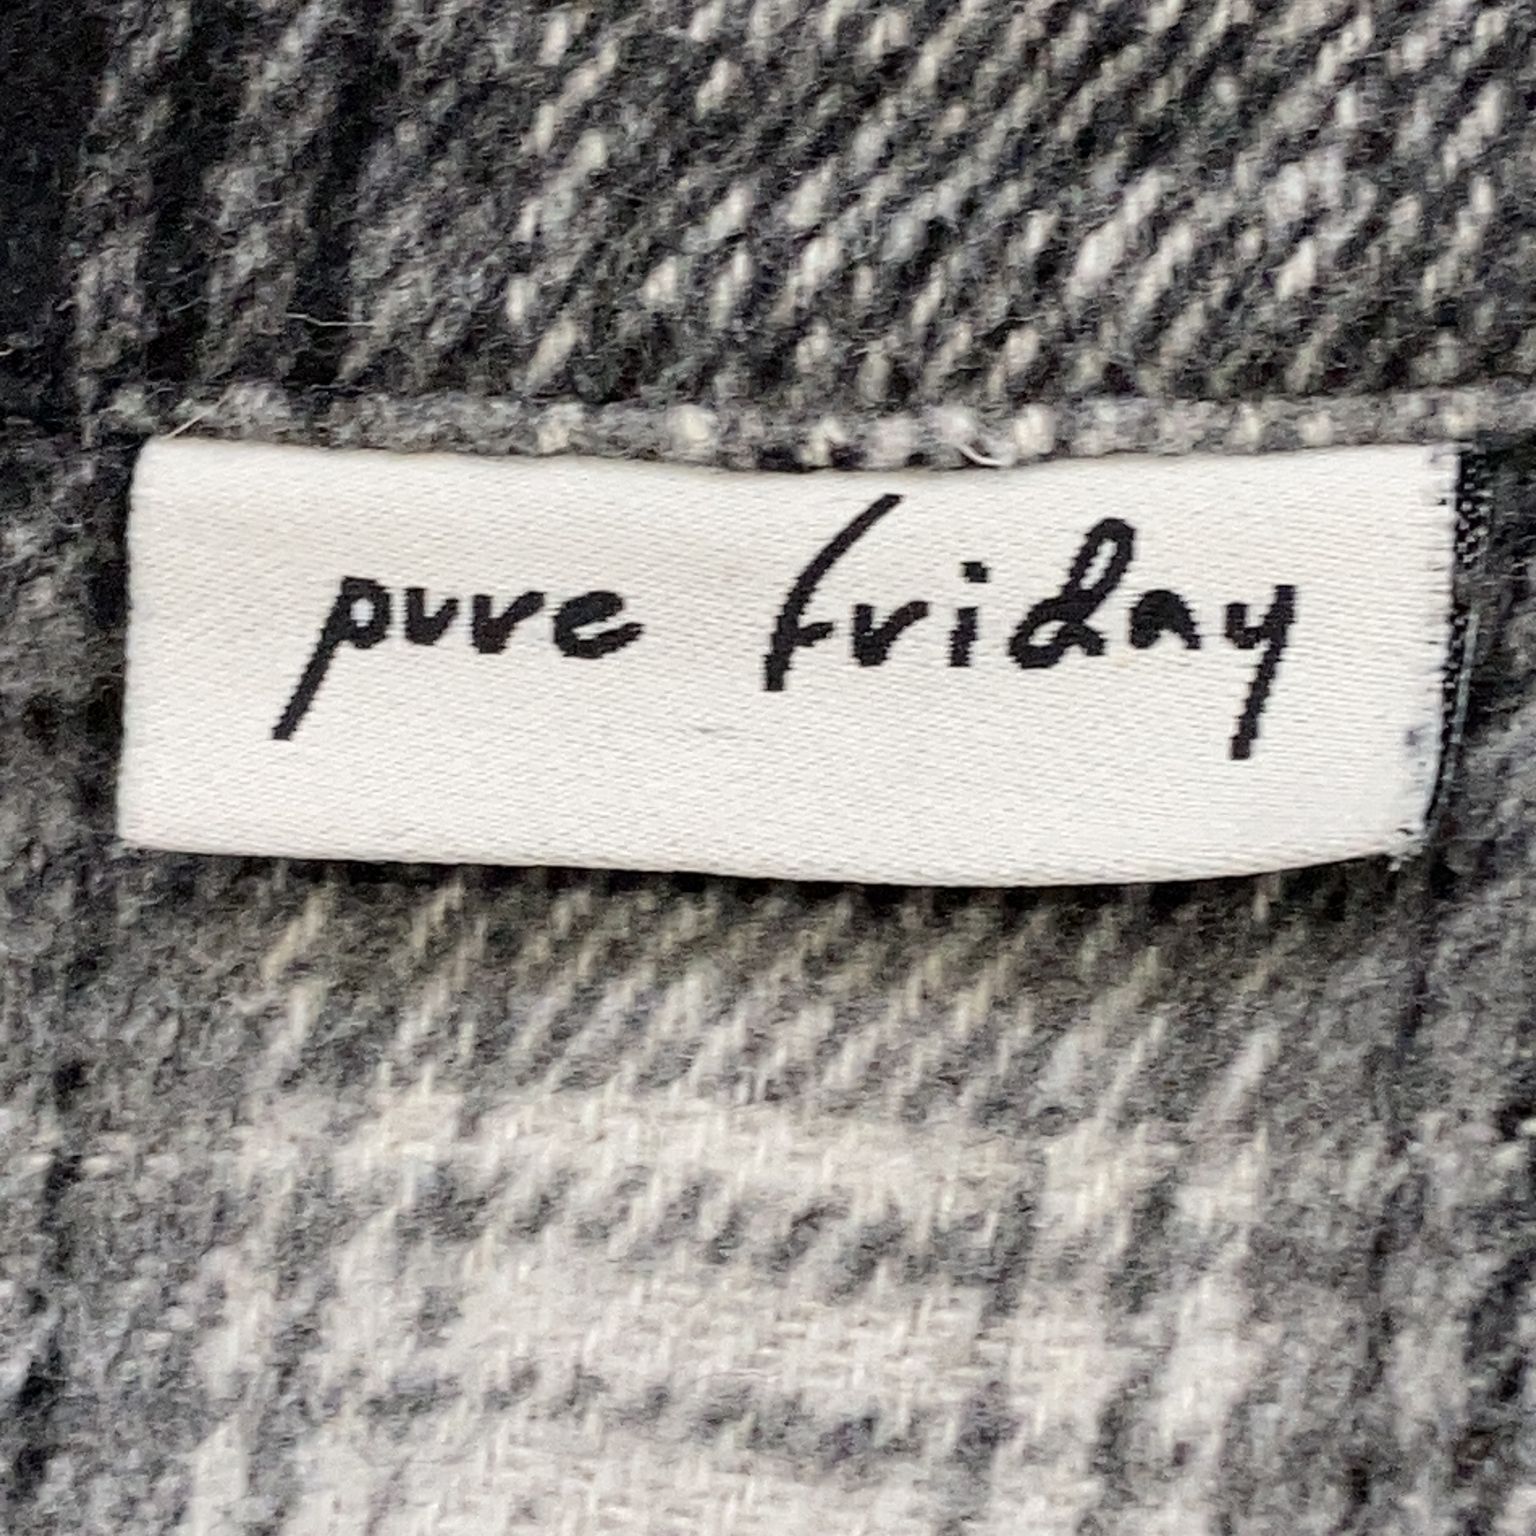 pure friday